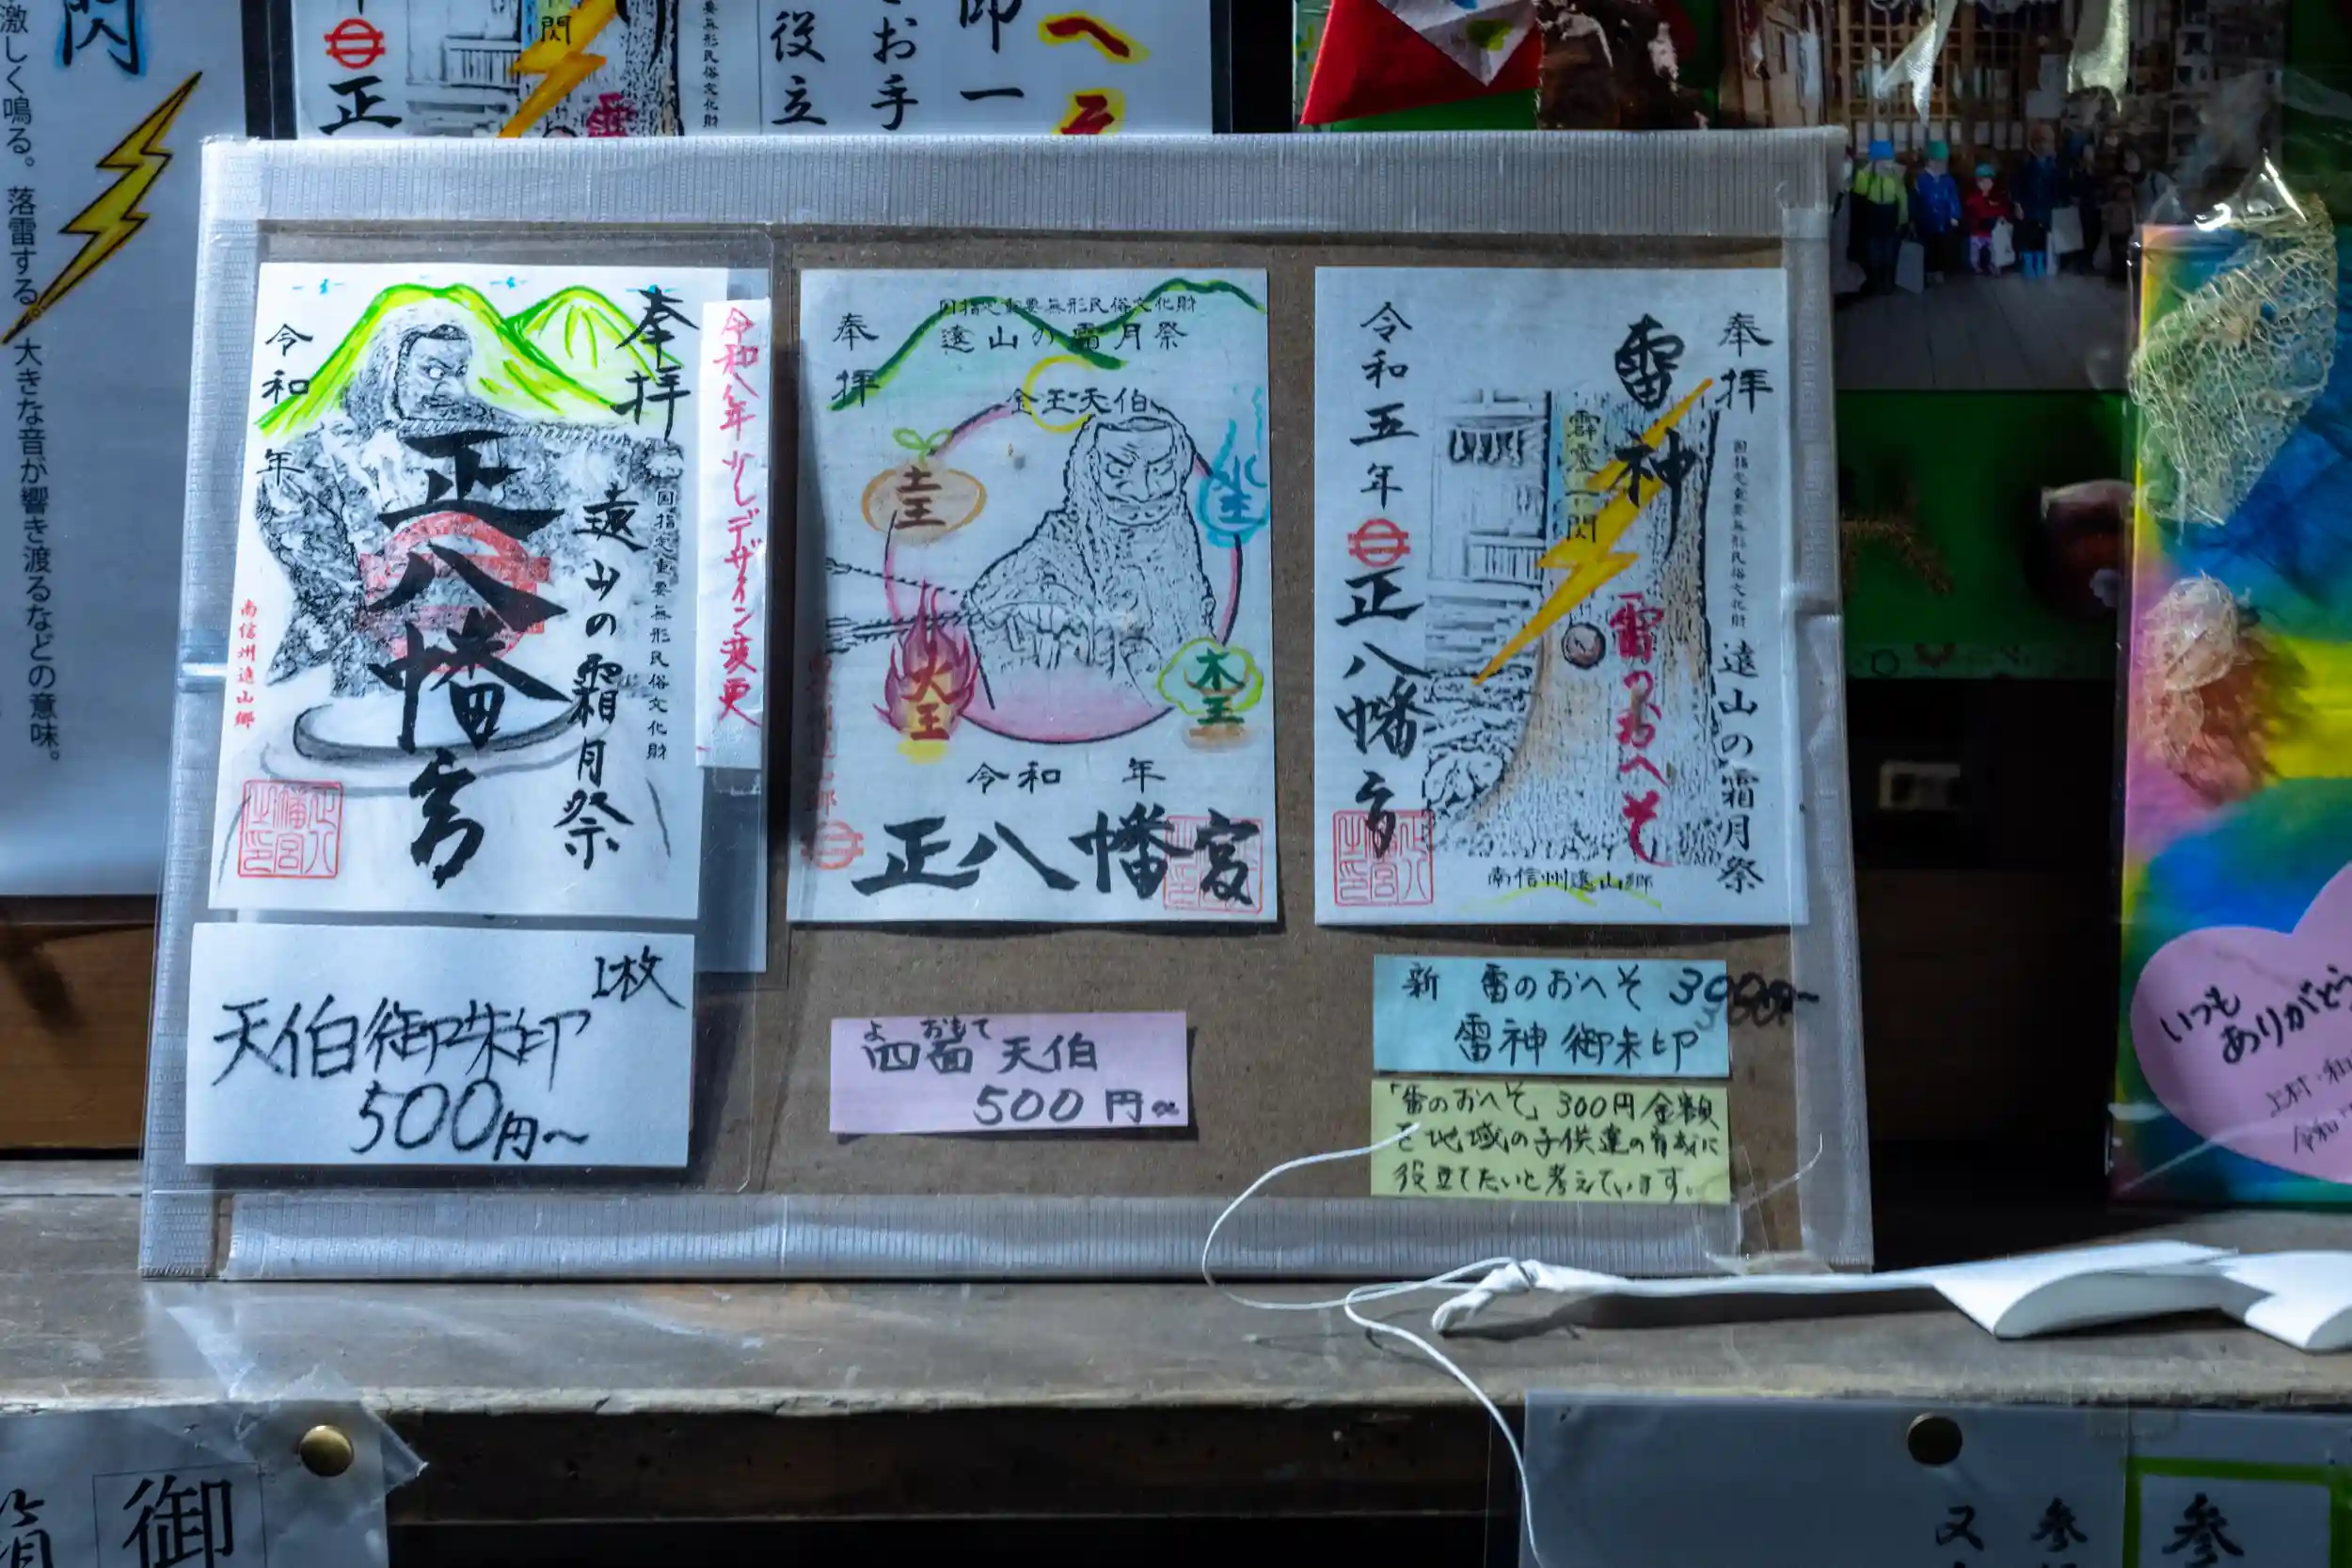 閃
激しく鳴る。落雷する。大きな音が響き渡るなどの意味。
正
閃
役立
お手
印一
へそ
奉拝
令和 年
正八幡宮
遠山の霜月祭
国指定重要無形民俗文化財
南信州遠山郷
正八幡宮之印
令和八年少しデザイン変更
1枚
天伯御朱印
500円〜
奉拝
国指定重要無形民俗文化財
遠山の霜月祭
金王天伯
土王
水王
火王
木王
令和 年
正八幡宮
よ おもて
四面 天伯
500円〜
奉拝
雷神
国指定重要無形民俗文化財
遠山の霜月祭
霹靂一閃
雷のおへそ
令和五年
正八幡宮
南信州遠山郷
新 雷のおへそ 300円〜
雷神御朱印
「雷のおへそ」300円金額
を地域の子供達の育成に
役立てたいと考えています。
いつも
ありがとう
上村・和
令和
御
参
参
又